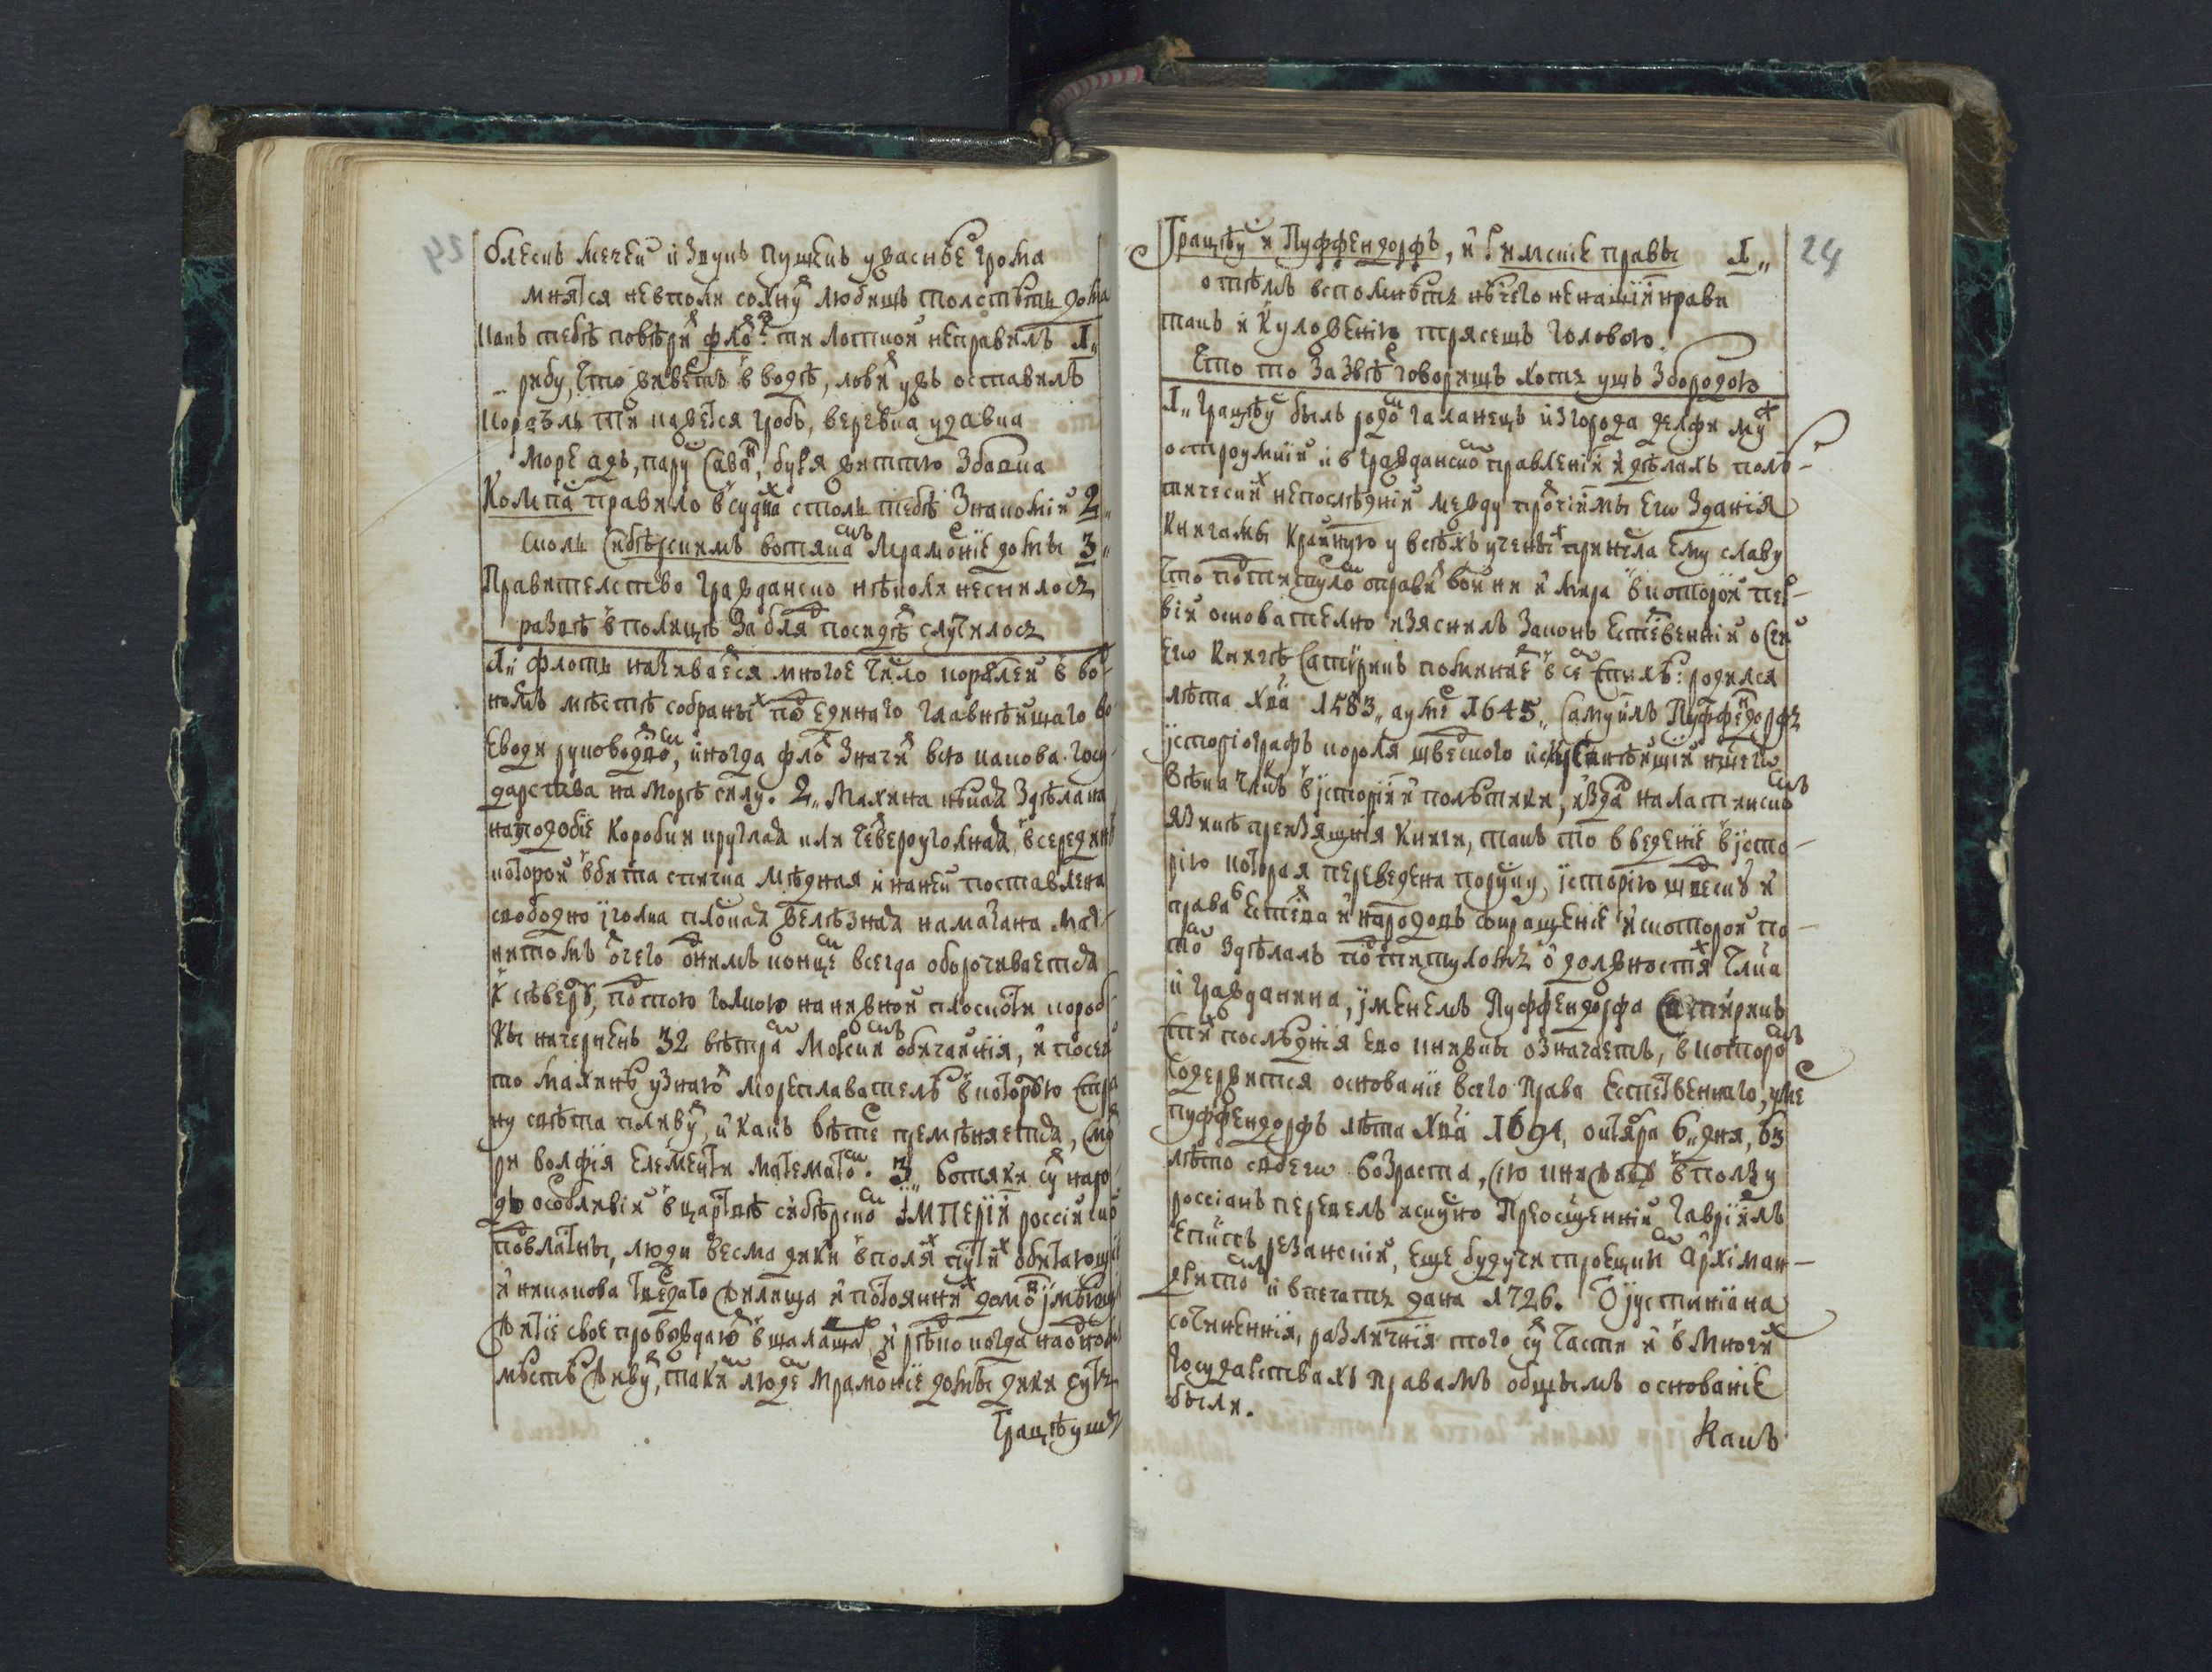 блескъ мечей и звукъ пушекъ ужаснѣе грома
мнятся не в поли сохнуⷮ любишъ толстѣть дома
какъ тебѣ повѣриⷮ флоⷮ? ти лоткой неправилъ 1„
рибу, что живетъ в водѣ, ловиⷮ ужъ оставилъ
корабль ти кажется гробъ, веревка удавка
море адъ, паруⷭ саваⷩ, буря життю збавка
Компаⷭ правило в судⷩаⷯ столь тебѣ знакомій 2„
сколь сибѣрскимъ вотякаⷨ мрамоⷬніе доми 3„
Правителство гражданско нѣколи неснилось
развѣ в полицѣ за бляⷣ посидѣⷮ случилось
1„ флотъ називаеⷮся многое число кораблей в во
номъ мѣстѣ собраниⷯ поⷣ единаго главнѣйшаго во
еводи руководⷭтвоⷨ, иногда флоⷮ значиⷮ всю какова госу
дарства на морѣ силу. 2„ Махина нѣкая здѣлана
на подобіе коробки круглая или четвероуголная, в середин
которой вбита спичка мѣдная и на ней поставлена
свободно іголка плоⷭкая желѣзная намазана маг
нитомъ оⷮ чего оⷣнимъ концеⷨ всегда оборочивается
к сѣверу, поⷣ тою голкою на нижной плоскости короб
ки начерненъ 32 вѣтра морскиⷨ обичайнія, и по сей
то махинѣ узнаюⷮ мореплаватели в которую стра
ну свѣта пливуⷮ, и какъ вѣтеⷬ премѣняется, смо
ри волфія елементи математоⷨ. 3„ вотяки суⷮ наро
дъ особливій в царⷭтвѣ сибѣрскоⷨ імперіи россійско
поⷣвлаⷭтны, люди весма дики в поляⷯ пустиⷯ обитающи
и никакова твеⷬдаго жилища и постояннихⷯ домоⷡ імѣющи
житіе свое провождаюⷮ в шалашаⷯ, и рѣⷣко когда на одноⷨ
мѣстѣ живуⷮ, такиⷨ людеⷨ мрамоⷬніе доми дики суть
Граціѣушъ
24
Граціѣуⷭ и Пуффендорфъ, и римскіе правы 1„
о тѣмъ вспомнѣть нѣчего не наши нрави
такъ и къ уложенію трясешъ головою.
Кто то за звѣⷬ говоришъ хоть ужъ з бородою
1„ Граціѣуⷭ былъ родоⷨ галанецъ из города делфи муⷤ
остроумній и в гражданскоⷨ правленіи и дѣлахъ поли-
тическиⷯ непослѣдній между проⷮчіими его зданія
книгами крайную у всѣхъ ученыⷯ принесла ему славу
что поⷣ титулоⷨ о правѣ войни и мира в которой пеⷬ-
вій основателно изяснилъ законъ естеⷭтвенній о сей
его книгѣ сатирикъ поминаеⷮ в сеⷨ стихѣ: родился
лѣта хⷭва 1583„ а умⷬе 1645„ Самуилъ Пуффеⷩдорфъ
історіографъ короля шведского искуснѣйшій нашего
вѣка члⷡкъ в історіи и политики, издаⷧ на латинскоⷨ
язикѣ преизящнія книги, такъ то введеніе в істо-
рію которая переведена по руⷭку, історію шведску и
права естеⷭтва и народовъ сокращеніе и которой по-
тоⷨ здѣлалъ поⷣ титуломъ о должностяⷯ члⷡка
и гражданина, іменемъ Пуффендорфа сатирикъ
сти послѣднія его книжки означаетъ, в котороⷨ
содержится основаніе всего права естественнаго, умⷬе
пуффендорфъ лѣта хⷭва 1694, октября 6„ дня, 63
лѣто своего возраста, сію книжицу в ползу
россіанъ перевелъ искуⷭно Преосщенній Гавріилъ
епиⷭкпъ резанскій, еще будучи троецкиⷨ архіман-
дритоⷨ и в печать дана 1726. О јустиніана
сочиненнія, различнія того суⷮ части и в многиⷯ
государствахъ правамъ общымъ основаніе
были.
Какъ